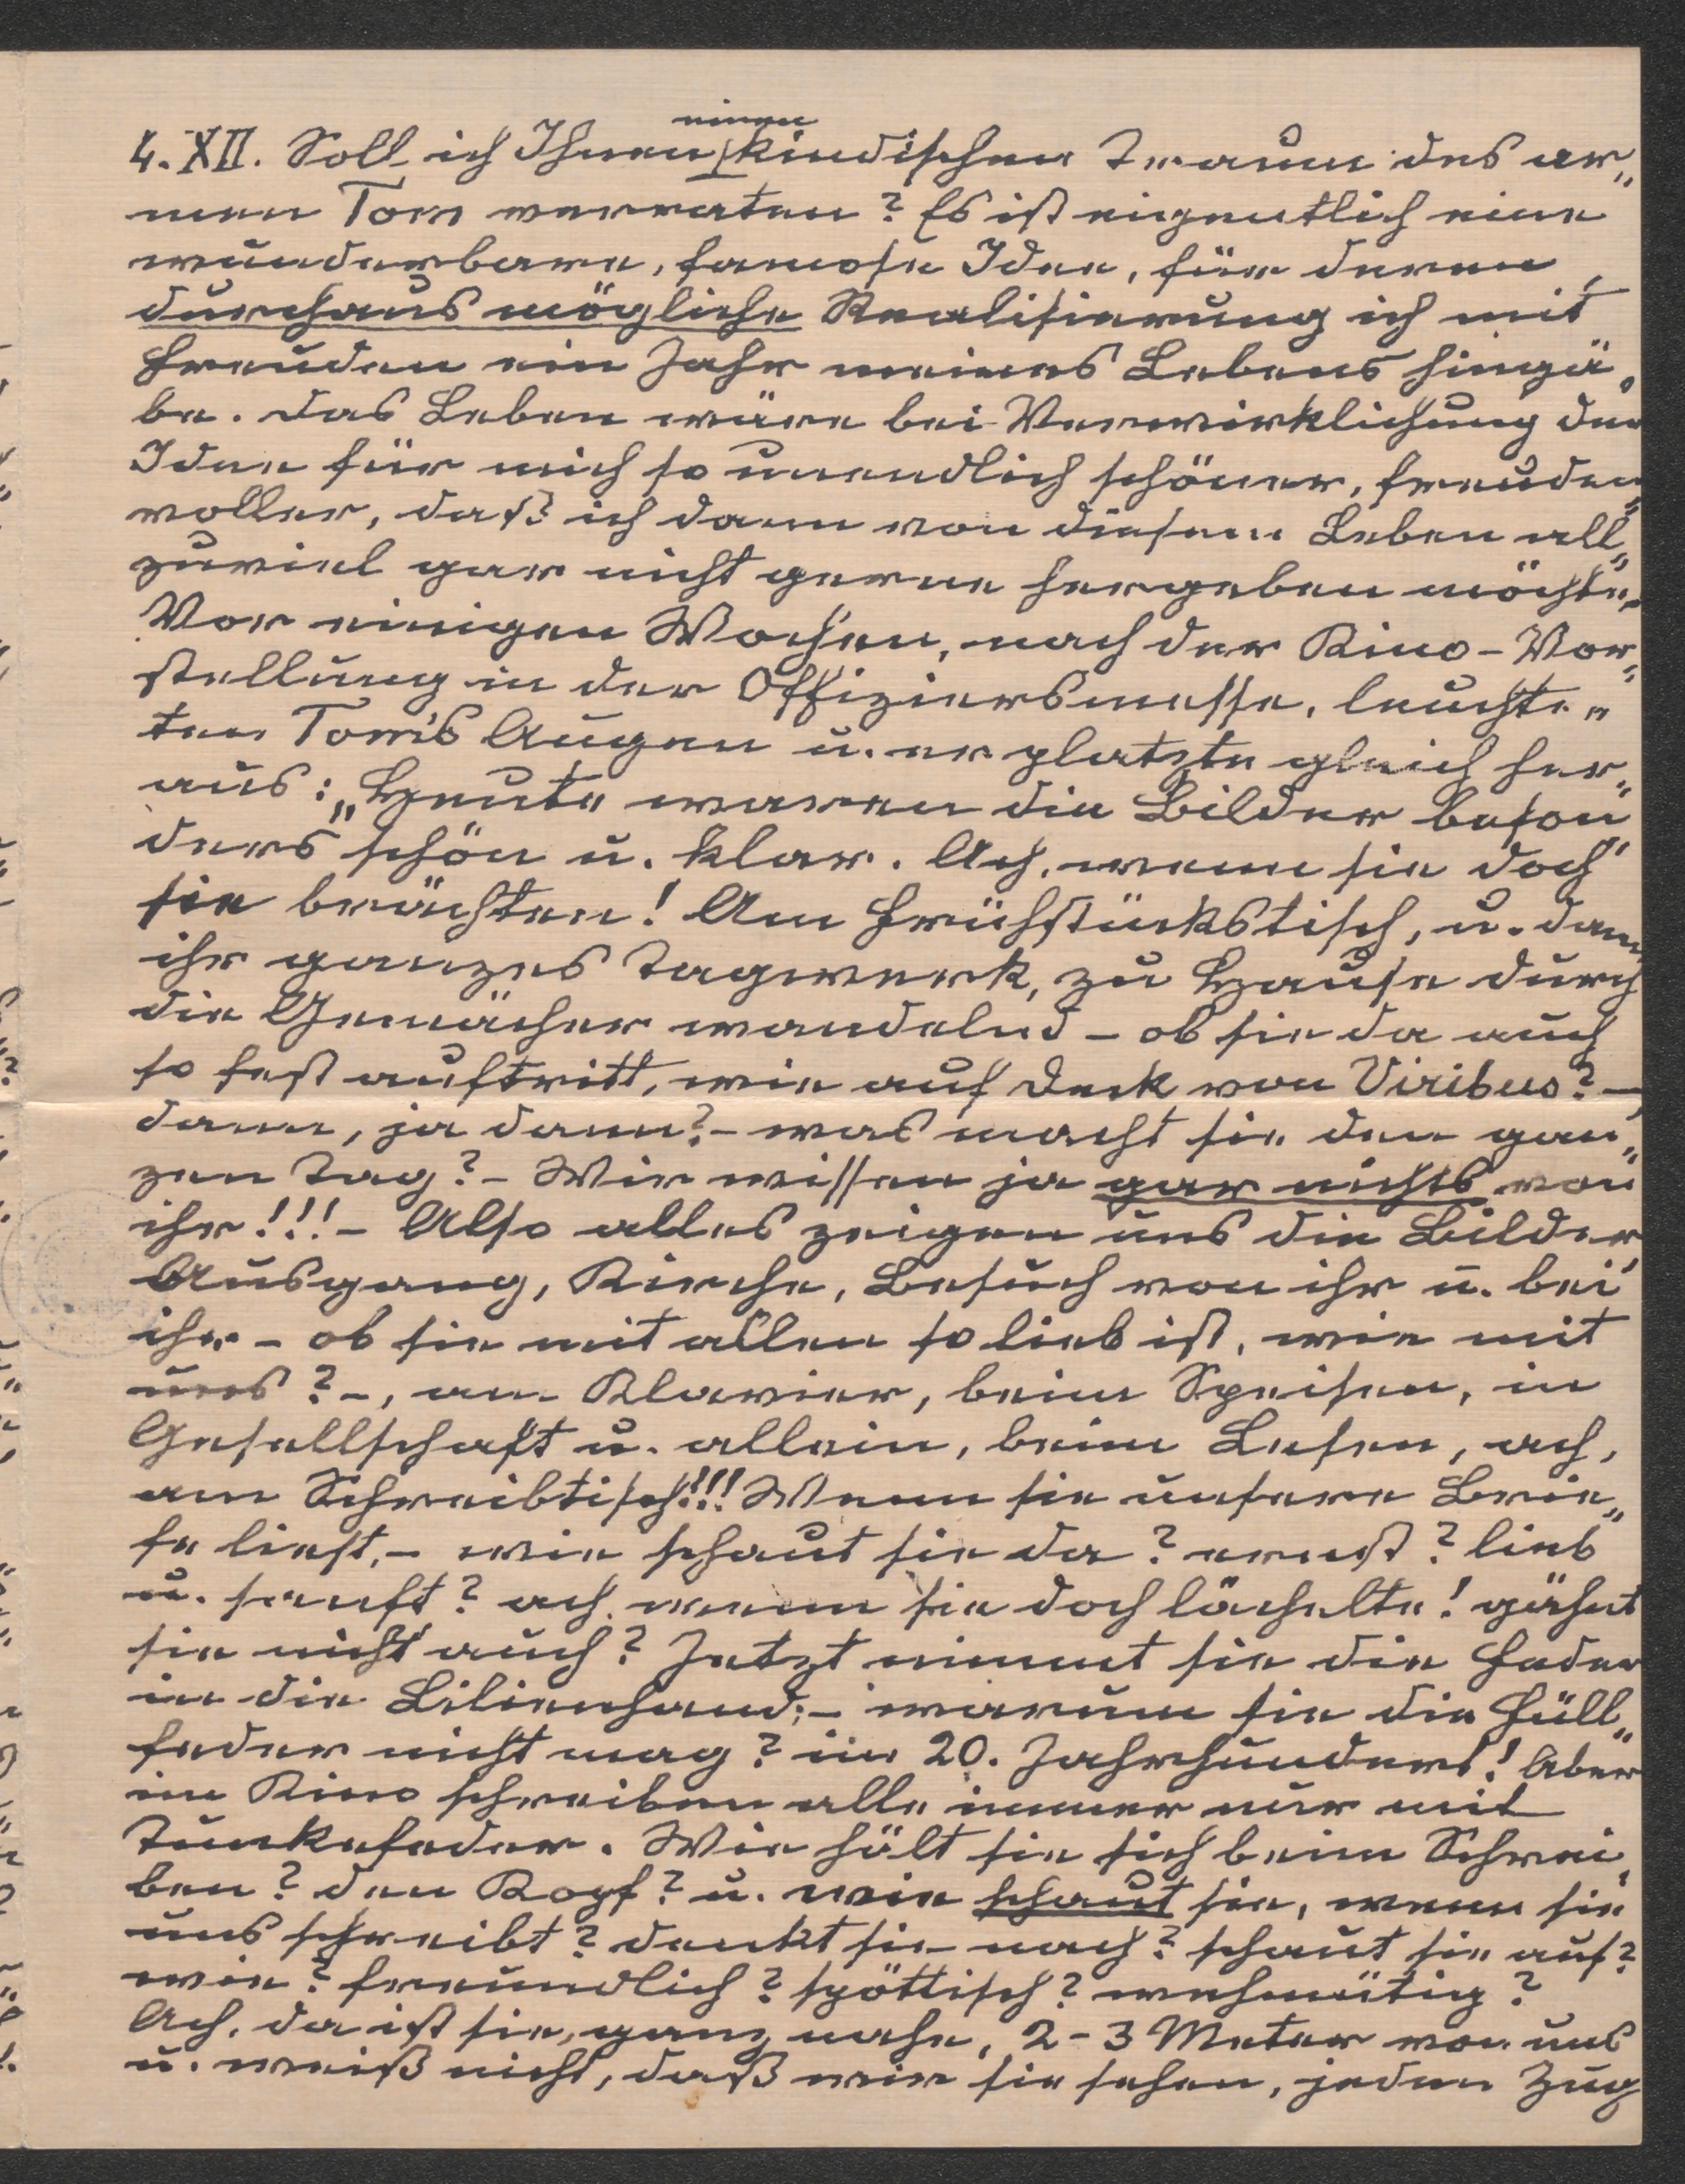 4. XII. Soll ich Ihnen einen kindischen Traum des ar„
men Tom verraten? Es ist eigentlich eine
wunderbare, famose Idee, für deren
durchaus mögliche Realisierung ich mit
Freuden ein Jahr meines Lebens hingä„
be. Das Leben wäre bei Verwirklichung der
Idee für mich so unendlich schöner, freuden„
voller, daß ich dann von diesem Leben all„
zuviel gar nicht gerne hergeben möchte.
Vor einigen Wochen, nach der Kino-Vor„
stellung in der Offiziersmesse, leuchte„
ten Tom's Augen u. er platzte gleich her„
aus: „Heute waren die Bilder beson„
ders schön u. klar. Ach, wenn sie doch
sie brächten! Am Frühstückstisch, u. dann
ihr ganzes Tagwerk, zu Hause durch
die Gemächer wandelnd – ob sie da auch
so fest auftritt, wie auf Deck von Viribus? –,
dann, ja dann? – was macht sie den gan„
zen Tag? – Wir wissen ja gar nichts von
ihr!!! – Also alles zeigen uns die Bilder
Ausgang, Kirche, Besuch von ihr u. bei
ihr – ob sie mit allen so lieb ist, wie mit
uns? –, am Klavier, beim Speisen, in
Gesellschaft u. allein, beim Lesen, ach,
am Schreibtisch!!! Wenn sie unsere Brie„
fe liest, – wie schaut sie da? ernst? lieb
u. sanft? ach, wenn sie doch lächelte! gähnt
sie nicht auch? Jetzt nimmt sie die Feder
in die Lilienhand; – warum sie die Füll„
feder nicht mag? im 20. Jahrhundert! Aber
im Kino schreiben alle immer nur mit
Tunkefeder. Wie hält sie sich beim Schrei„
ben? den Kopf? u. wie schaut sie, wenn sie
uns schreibt? denkt sie nach? schaut sie auf?
wie? freundlich? spöttisch? wehmütig?
Ach, da ist sie, ganz nahe, 2-3 Meter von uns
u. weiß nicht, daß wir sie sehen, jeden Zug